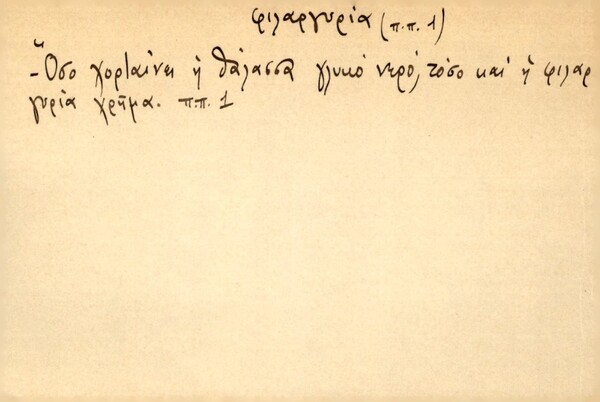 φιλαργυρία (π.π. 1)
- Ὅσο χορταίνει ἡ θάλασσα γλυκό νερό, τόσο καί ἡ φιλαρ
γυρία χρῆμα. π.π. 1